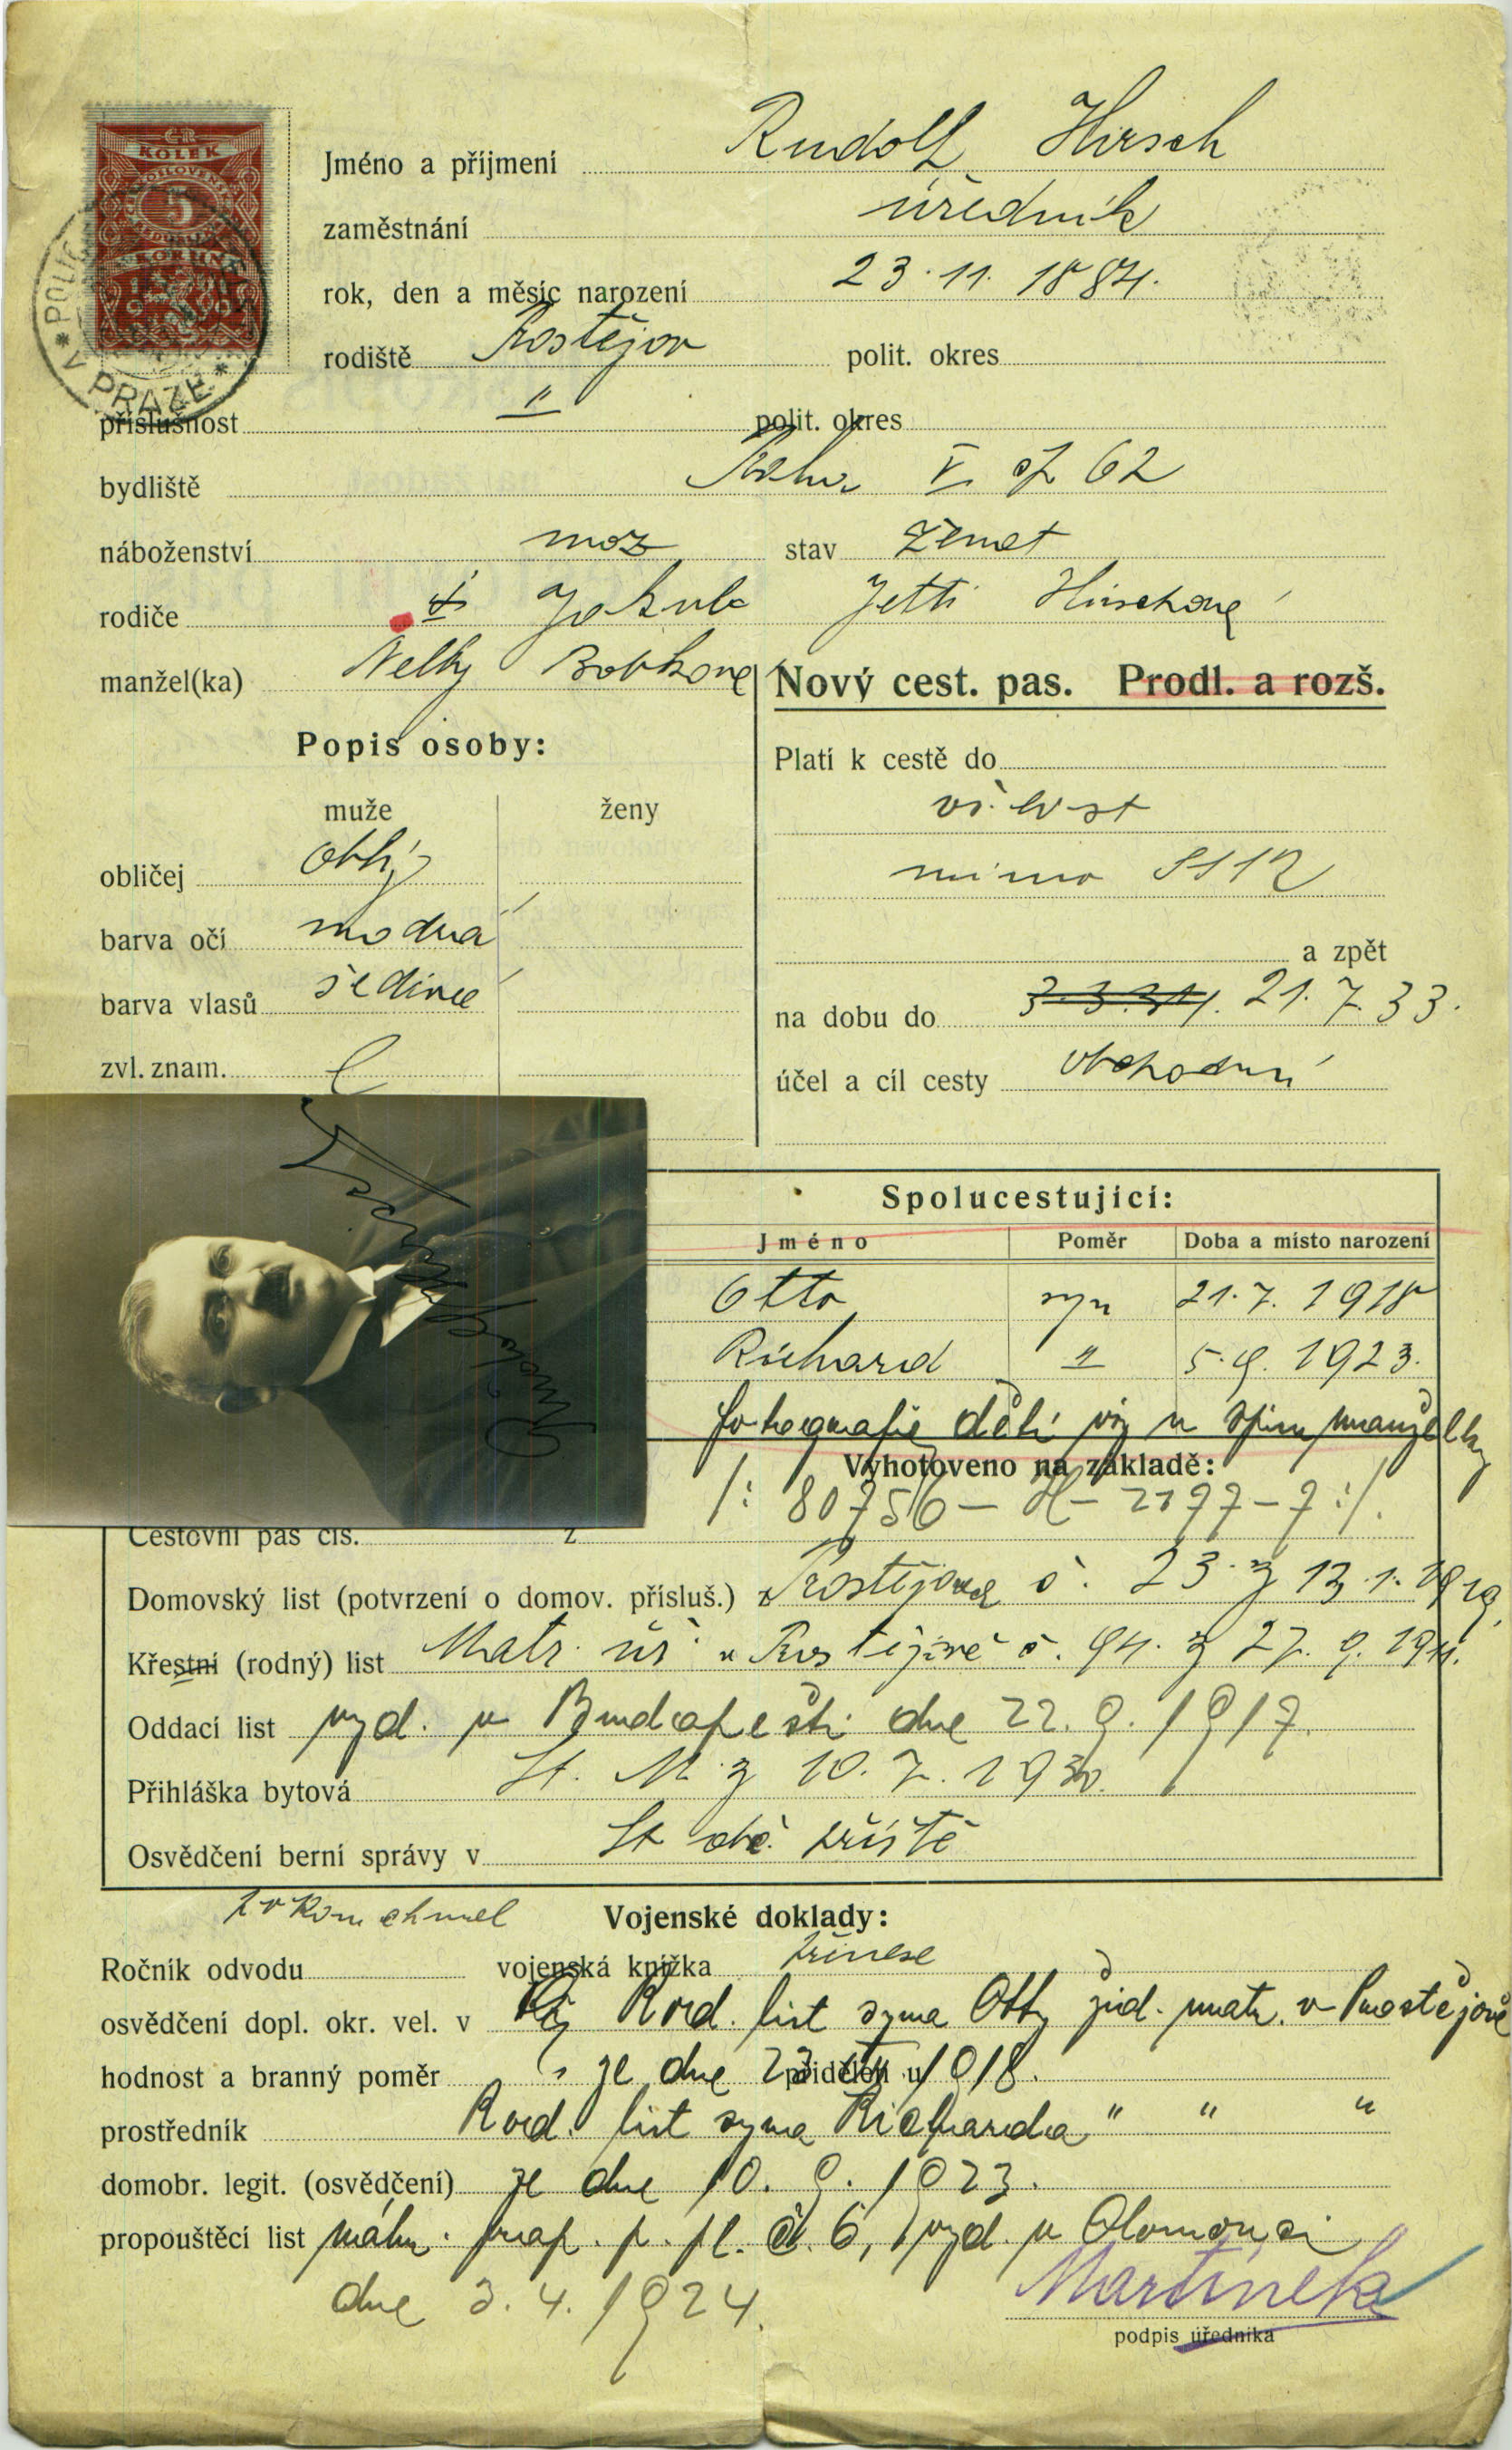 KOLEK
5
POLIC
V PRAZE
Jméno a příjmení Rudolf Hirsch
zaměstnání úředník
rok, den a měsíc narození 23. 11. 1884.
rodiště Prostějov polit. okres
příslušnost " polit. okres
bydliště Praha V. 62
náboženství moz stav ženat
rodiče Jakub Jetti Hirschové
manžel(ka) Nelly
Nový cest. pas. Prodl. a rozš.
Popis osoby:
Platí k cestě do
muže ženy
obličej oblý
mimo SSSR
barva očí modrá
a zpět
barva vlasů šedivé
na dobu do 3. 3. 34. 21. 7. 33.
zvl. znam.
účel a cíl cesty obchodní
Spolucestující:
Jméno Poměr Doba a místo narození
Otto syn 21. 7. 1918
Richard " 5. 9. 1923.
fotografie dětí viz u spisu manželky
Vyhotoveno na základě:
/: 80756 – H – 2177 – 7 :/.
Cestovní pas čís. z
Domovský list (potvrzení o domov. přísluš.) č. 23. z 13. 1. 1919.
Křestní (rodný) list Matr. úř. v Prostějově č. 94. z 27. 9. 1911.
Oddací list vyd. v Budapešti dne 22. 9. 1917.
Přihláška bytová St. M. z 10. 7. 1930.
Osvědčení berní správy v příště
Vojenské doklady:
Ročník odvodu vojenská knížka přinese
osvědčení dopl. okr. vel. v Rod. list syna Otty žid. matr. v Prostějově
hodnost a branný poměr ze dne přidělen u 1918.
prostředník Rod. list syna Richarda " " "
domobr. legit. (osvědčení) ze dne 10. 9. 1923.
propouštěcí list náhr. prap. p. pl. č. 6, vyd. v Olomouci
dne 3. 4. 1924.
Martinek
podpis úředníka
Rudolf Hirsch